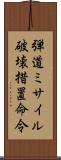 弾道ミサイル
破壊措置命令